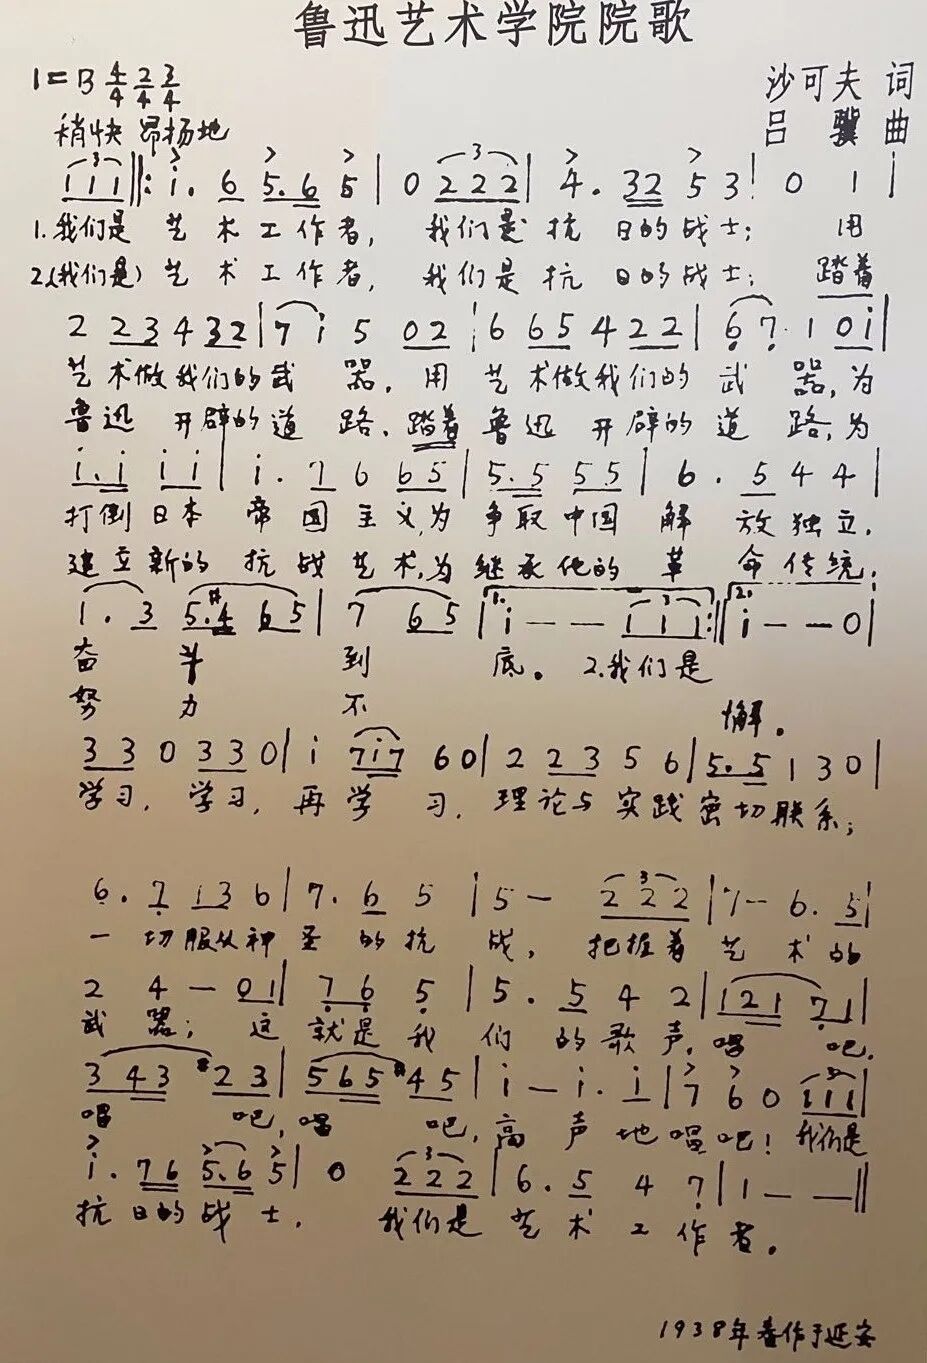 鲁迅艺术学院院歌
1=B 4/4 2/4 3/4
沙可夫 词
稍快 昂扬地
吕骥 曲
3
1 1 1 ‖: i. 6 5. 6 5 | 0 2 2 2 | 4. 3 2 5 3 | 0 1 |
1.我们是 艺术工作者, 我们是抗日的战士; 用
2.(我们是) 艺术工作者, 我们是抗日的战士; 踏着
2 2 3 4 3 2 | 7 i 5 0 2 | 6 6 5 4 2 2 | 6 7 1 0 i |
艺术做我们的武器, 用艺术做我们的武器, 为
鲁迅开辟的道路, 踏着鲁迅开辟的道路, 为
i. i i i | i. 7 6 6 5 | 5. 5 5 5 | 6. 5 4 4 |
打倒日本帝国主义, 为争取中国解放独立,
建立新的抗战艺术, 为继承他的革命传统;
1. 3 5. #4 6 5 | 7 6 5 | 1. i - - i i i :‖ 2. i - - 0 |
奋斗到底。 2.我们是
努力不懈。
3 3 0 3 3 0 | i 7 i 7 6 0 | 2 2 3 5 6 | 5. 5 1 3 0 |
学习, 学习, 再学习, 理论与实践密切联系;
6. 7 1 3 6 | 7. 6 5 | 5 - 2 2 2 | 1 - 6. 5 |
一切服从神圣的抗战, 把握着艺术的
2 4 - 0 1 | 7 6 5 | 5. 5 4 2 | 1 2 1 7 1 |
武器; 这就是我们的歌声, 唱吧,
3 4 3 #2 3 | 5 6 5 #4 5 | i - i. i | 7 6 0 i i i |
唱吧, 唱吧, 高声地唱吧! 我们是
i. 7 6 5. 6 5 | 0 2 2 2 | 6. 5 4 7 | 1 - - ‖
抗日的战士, 我们是艺术工作者。
1938年春作于延安